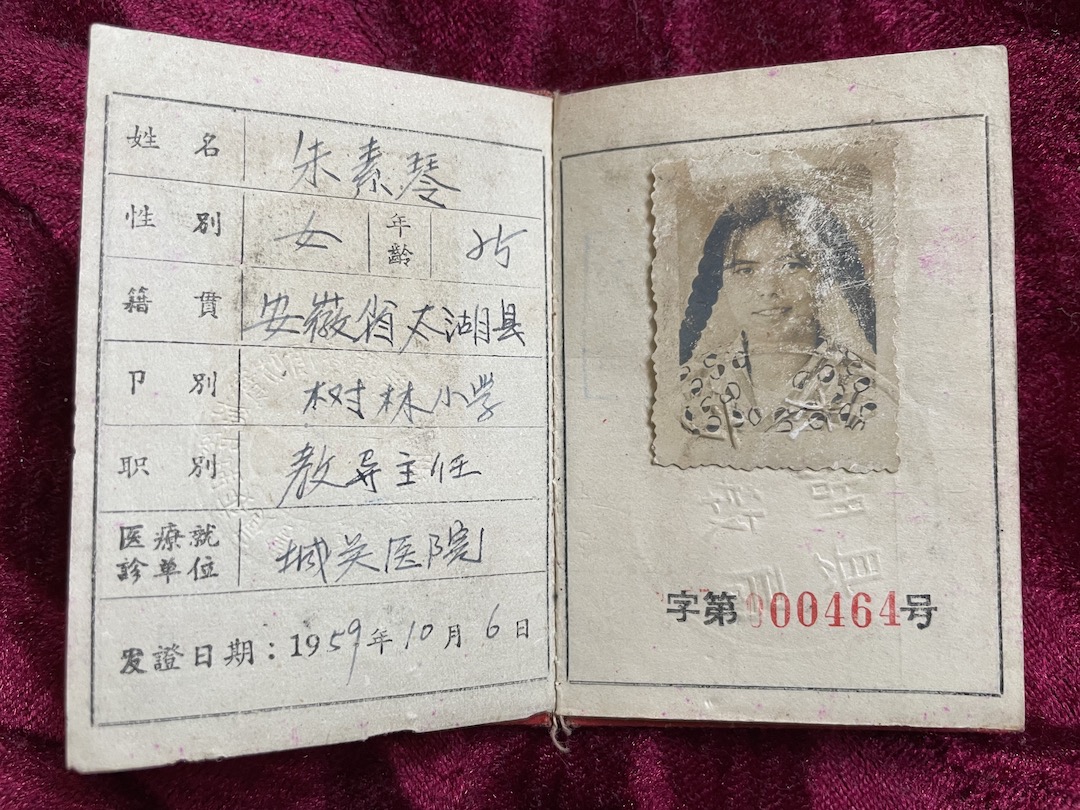 姓名 朱素琴
性別 女 年齡 25
籍貫 安徽省太湖县
卩別 树林小学
职別 教导主任
医療就診单位 城关医院
发證日期：1959年10月6日
字第000464号